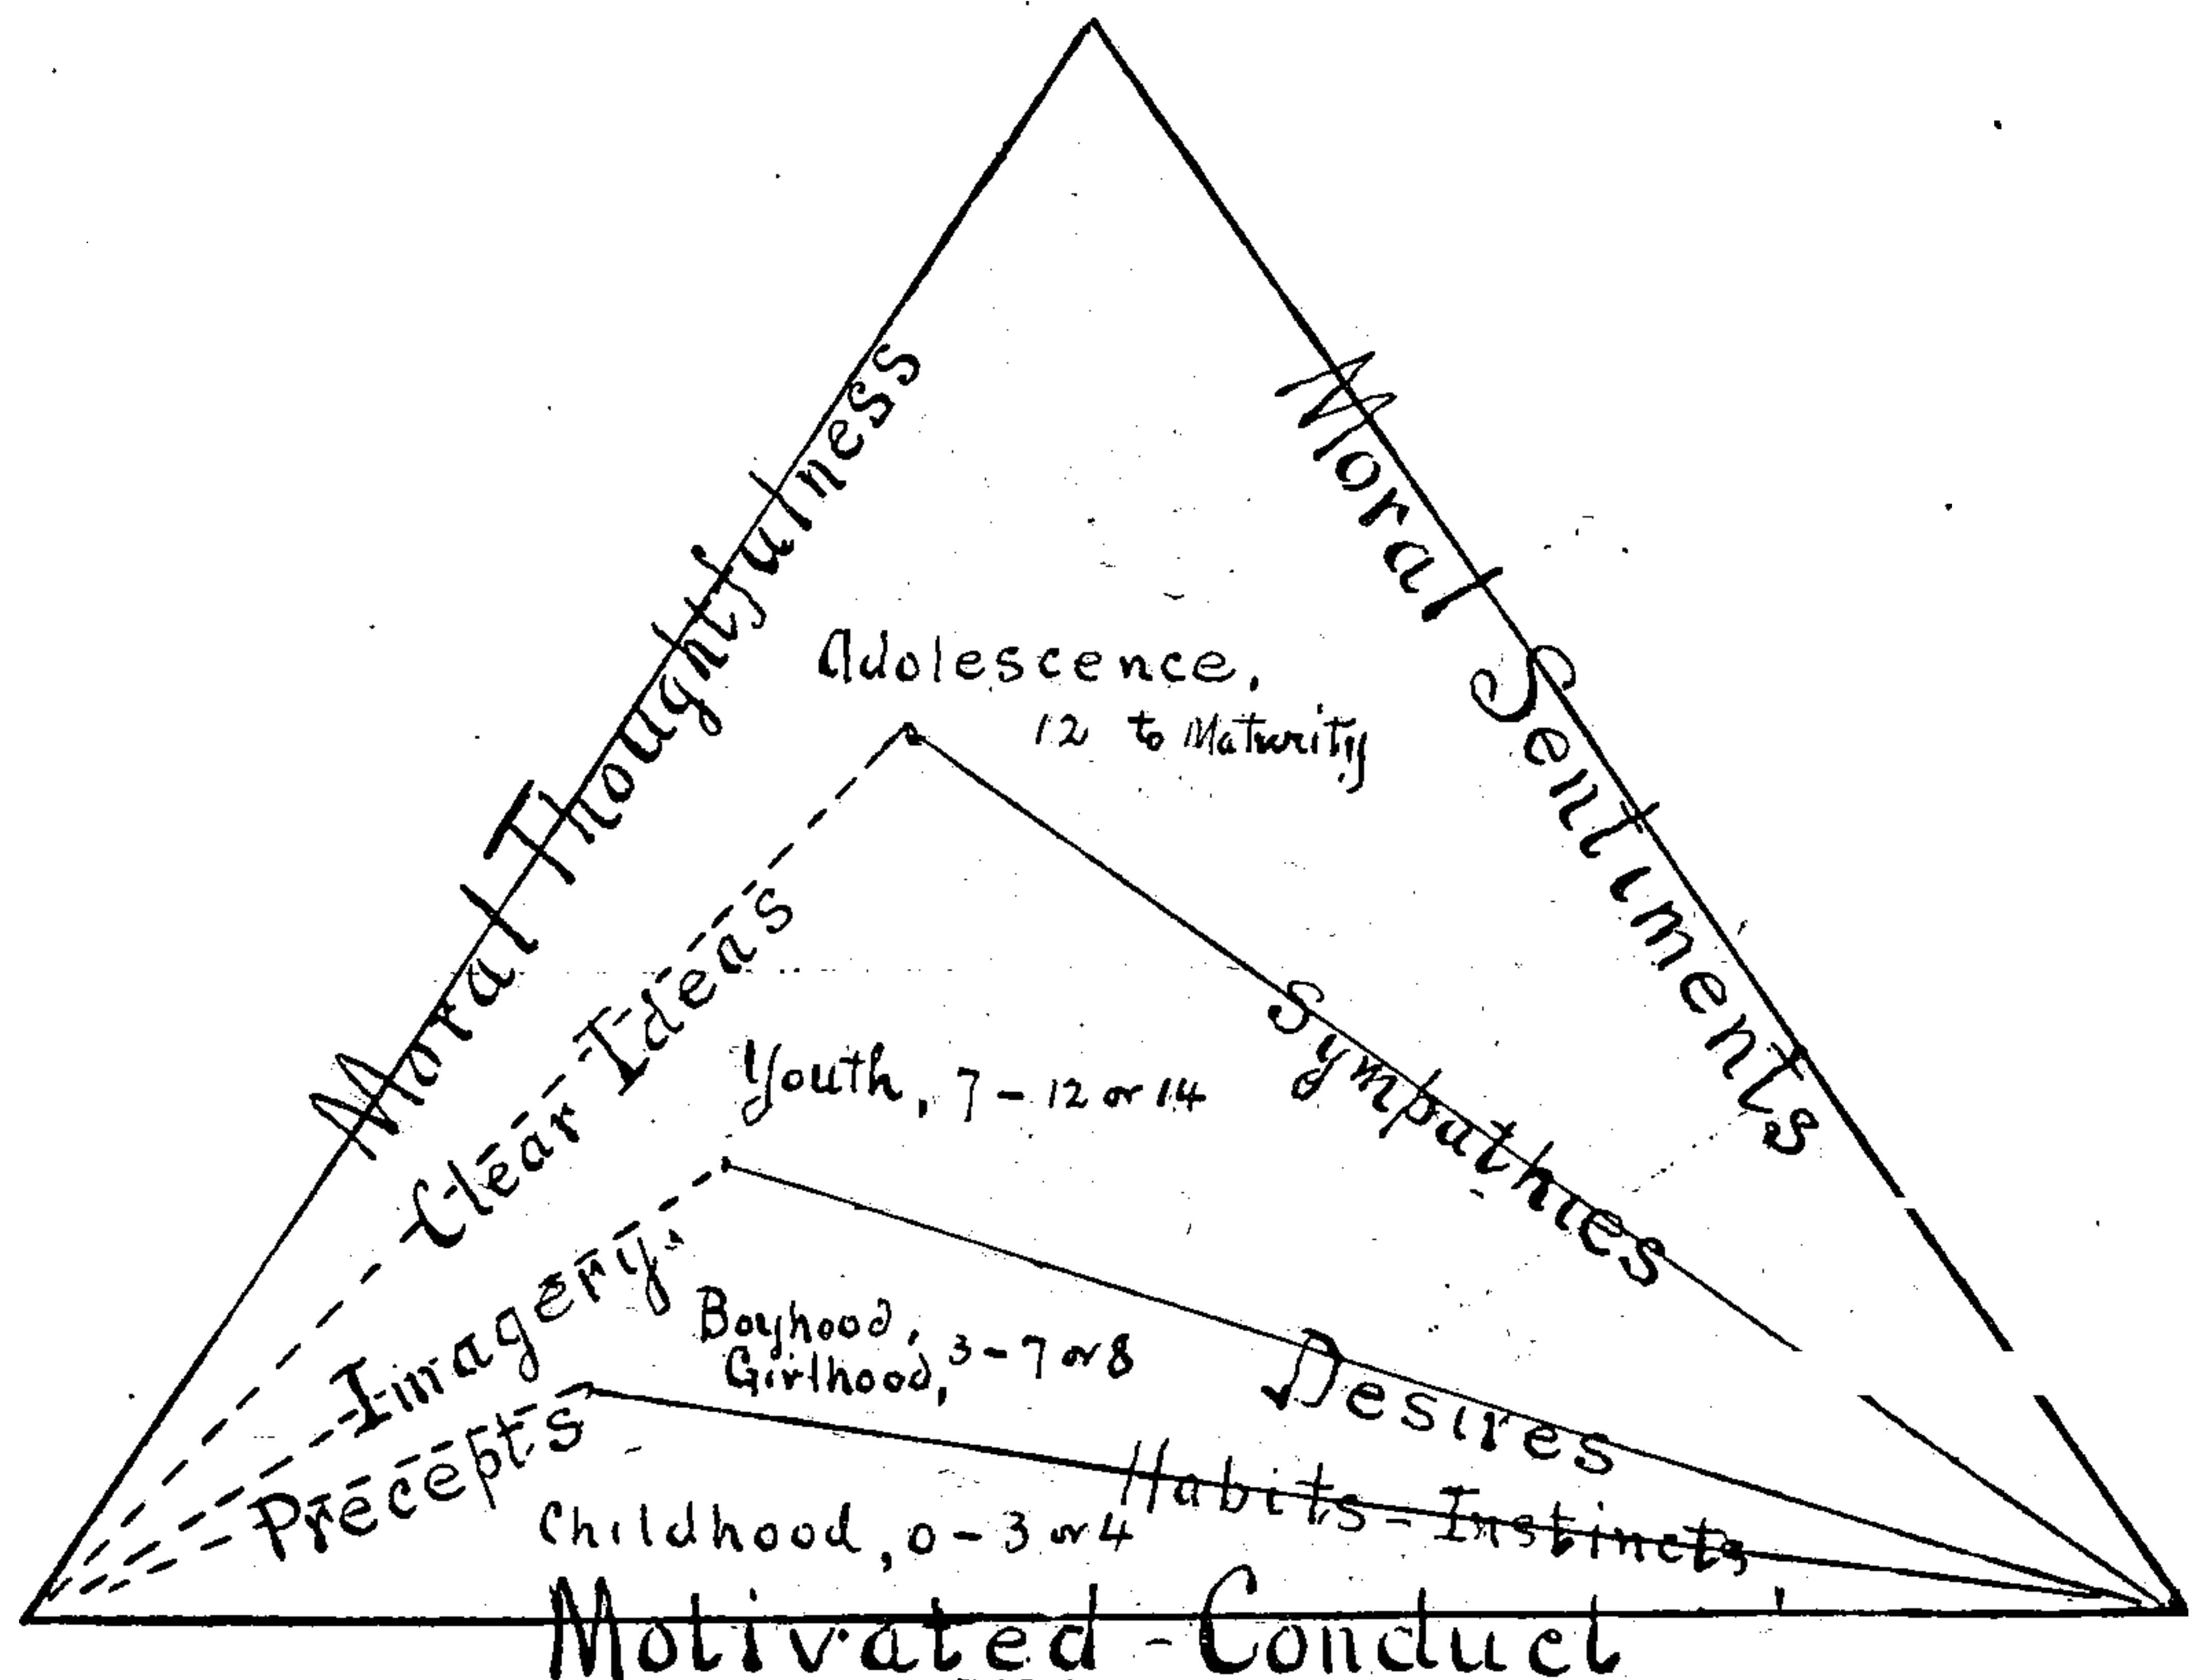 Moral Thoughtfulness
Moral Sentiments
Adolescence,
12 to Maturity
Clear Ideas
Sympathies
Youth, 7 - 12 or 14
Imagery.
Desires
Boyhood, 3 - 7 or 8
Girlhood,
Precepts
Habits - Instincts
Childhood, 0 - 3 or 4
Motivated - Conduct